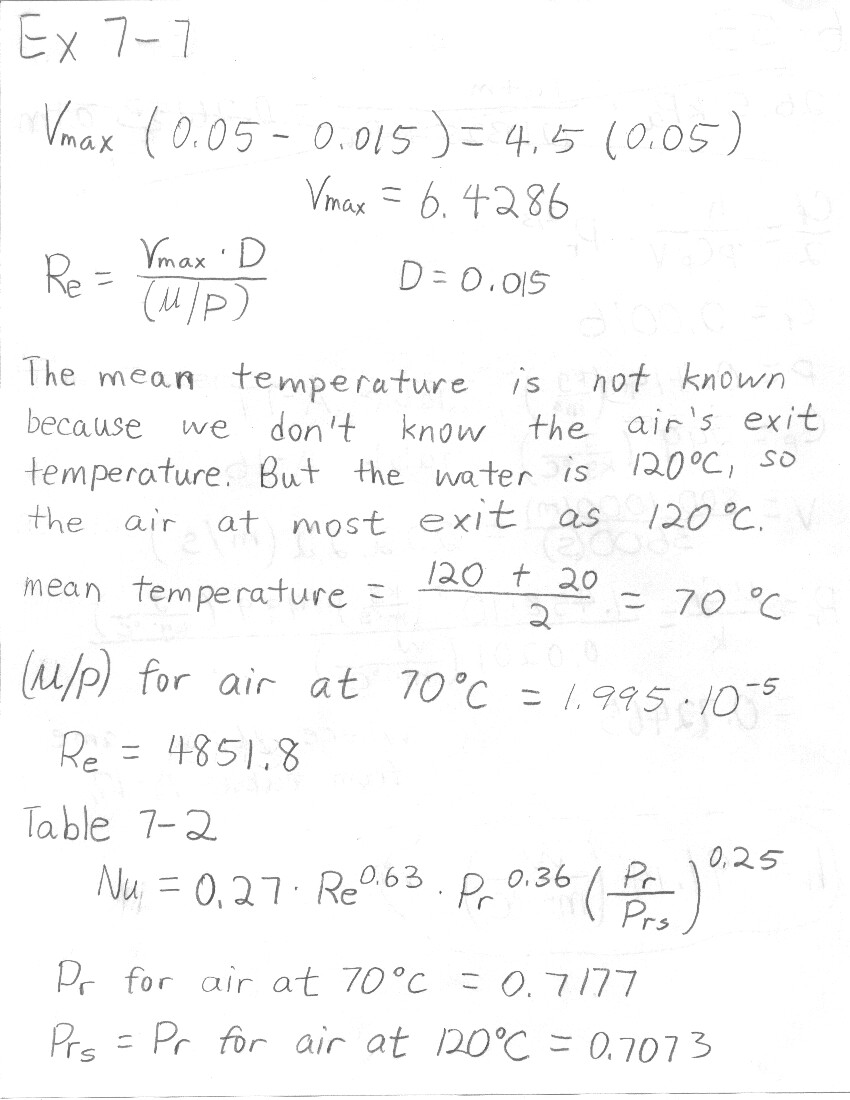 Ex 7-7
Vmax (0.05 - 0.015) = 4.5 (0.05)
Vmax = 6.4286
Re = Vmax · D / (μ/ρ)    D = 0.015
The mean temperature is not known
because we don't know the air's exit
temperature. But the water is 120°C, so
the air at most exit as 120°C.
mean temperature = 120 + 20 / 2 = 70 °C
(μ/ρ) for air at 70°C = 1.995·10^-5
Re = 4851.8
Table 7-2
Nu = 0.27 · Re^0.63 · Pr^0.36 (Pr / Prs)^0.25
Pr for air at 70°C = 0.7177
Prs = Pr for air at 120°C = 0.7073